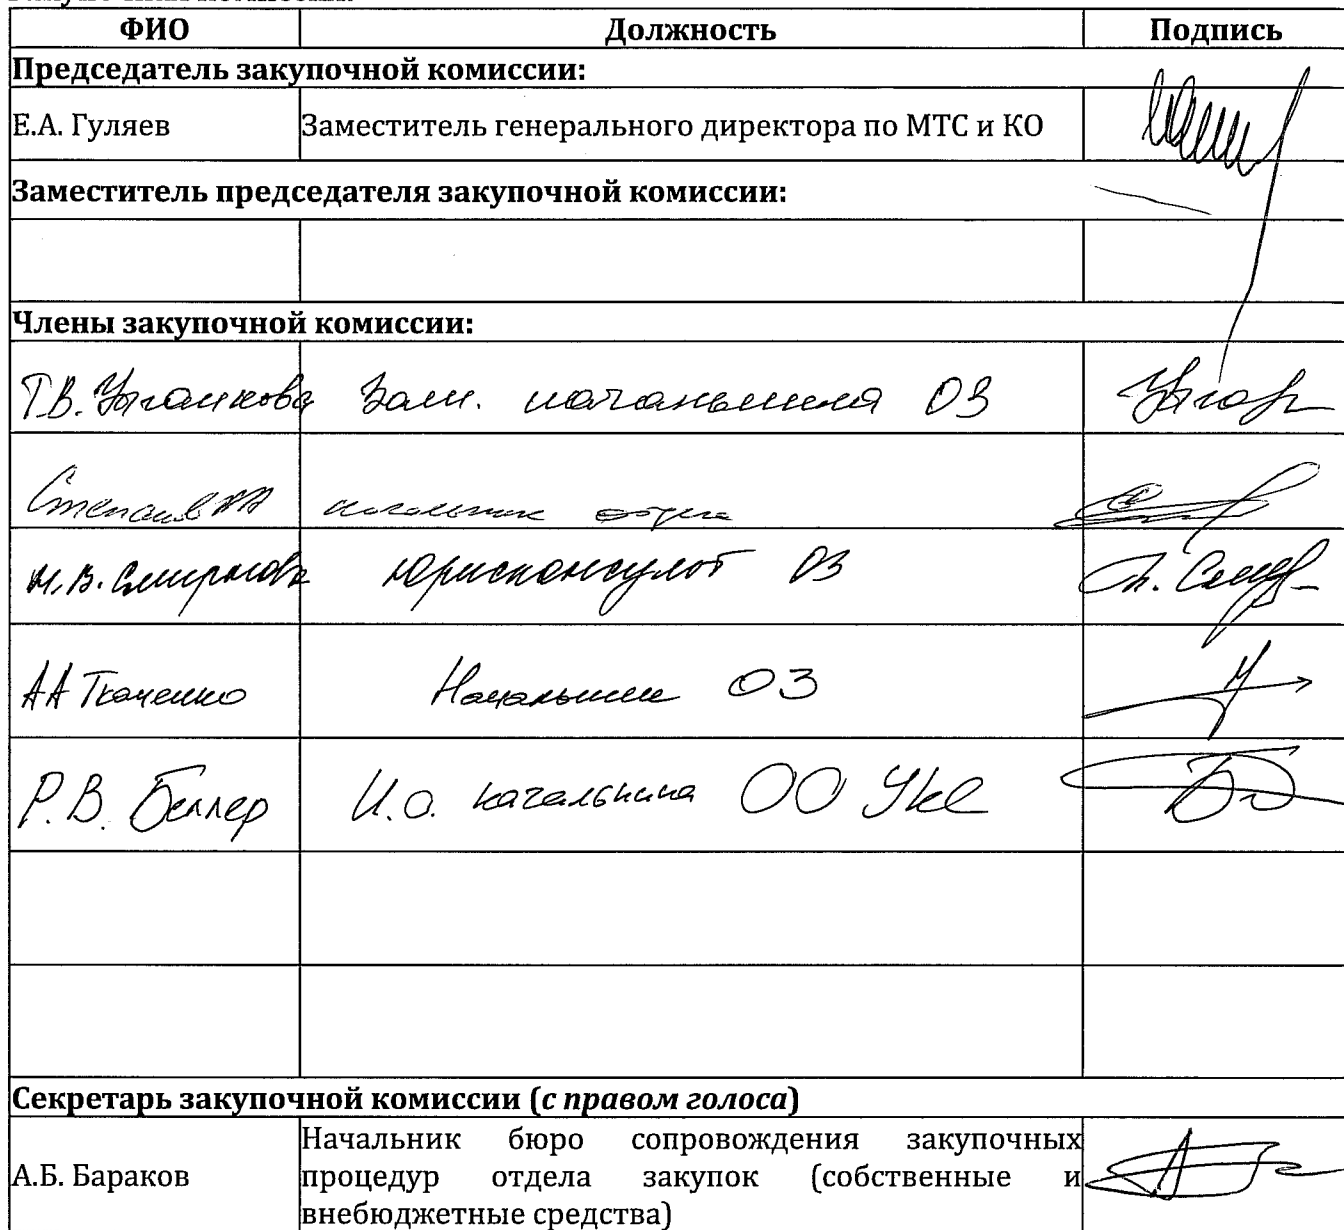 ФИО Должность Подпись
Председатель закупочной комиссии:
Е.А. Гуляев Заместитель генерального директора по МТС и КО
Заместитель председателя закупочной комиссии:
Члены закупочной комиссии:
Т.В. Цыганкова Зам. начальника ОЗ
Степанов начальник отдела
М.В. Смирнова юрисконсульт ОЗ
АА Ткаченко Начальник ОЗ
Р.В. Беллер И.о. начальника ОО УКС
Секретарь закупочной комиссии (с правом голоса)
Начальник бюро сопровождения закупочных
А.Б. Бараков процедур отдела закупок (собственные и
внебюджетные средства)